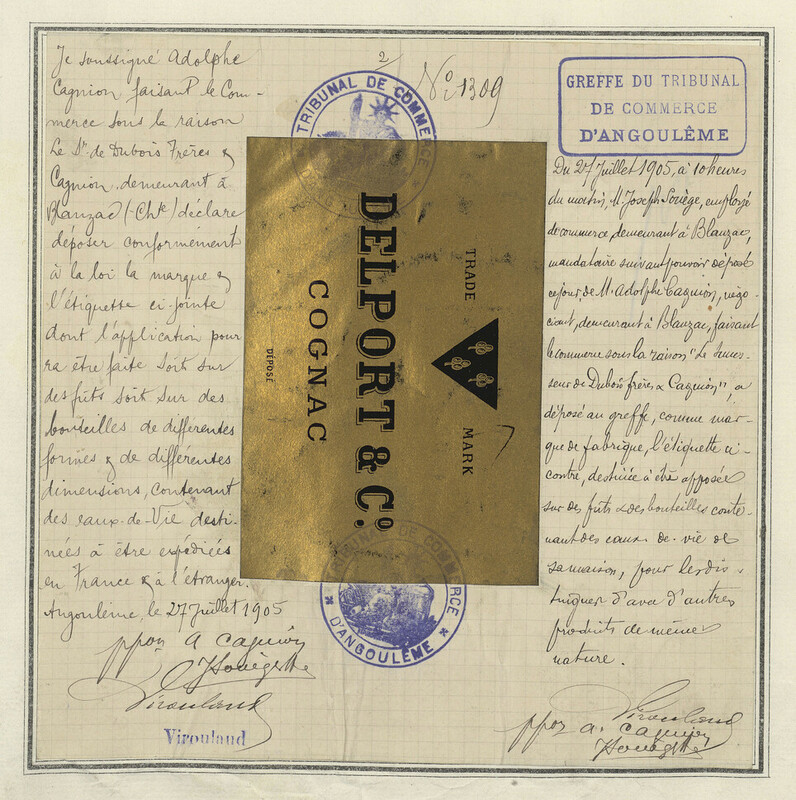 2
No 1309
Je soussigné Adolphe
Cagnion faisant le Com-
merce sous la raison
Le Sr. de Dubois Frères &
Cagnion demeurant à
Blanzac (-Chte) déclare
déposer conformément
à la loi la marque &
l'étiquette ci jointe
dont l'application pour
ra être faite soit sur
des futs soit sur des
bouteilles de differentes
formes & de différentes
dimensions, contenant
des eaux-de-Vie desti-
nées à être expédiées
en France & à l'étranger.
Angoulême, le 27 Juillet 1905
ppon a cagnion
Virouland
Virouland
TRIBUNAL DE COMMERCE
DELPORT & Co.
COGNAC
DÉPOSÉ
TRADE
MARK
TRIBUNAL DE COMMERCE
* D'ANGOULÊME *
GREFFE DU TRIBUNAL
DE COMMERCE
D'ANGOULÊME
Du 27 Juillet 1905, à 10 heures
du matin, M. Joseph, employé
de commerce, demeurant à Blanzac,
mandataire suivant pouvoir déposé
ce jour de M. Adolphe Cagnion, négo-
ciant, demeurant à Blanzac, faisant
le commerce sous la raison "Le Succes-
seur de Dubois frères & Cagnion", a
déposé au greffe, comme mar-
que de fabrique, l'étiquette ci-
contre, destinée à être apposée
sur des futs & des bouteilles conte-
nant des eaux-de-vie de
sa maison, pour les dis-
tinguer d'avec d'autres
produits de même
nature.
Virouland
ppon a. cagnion